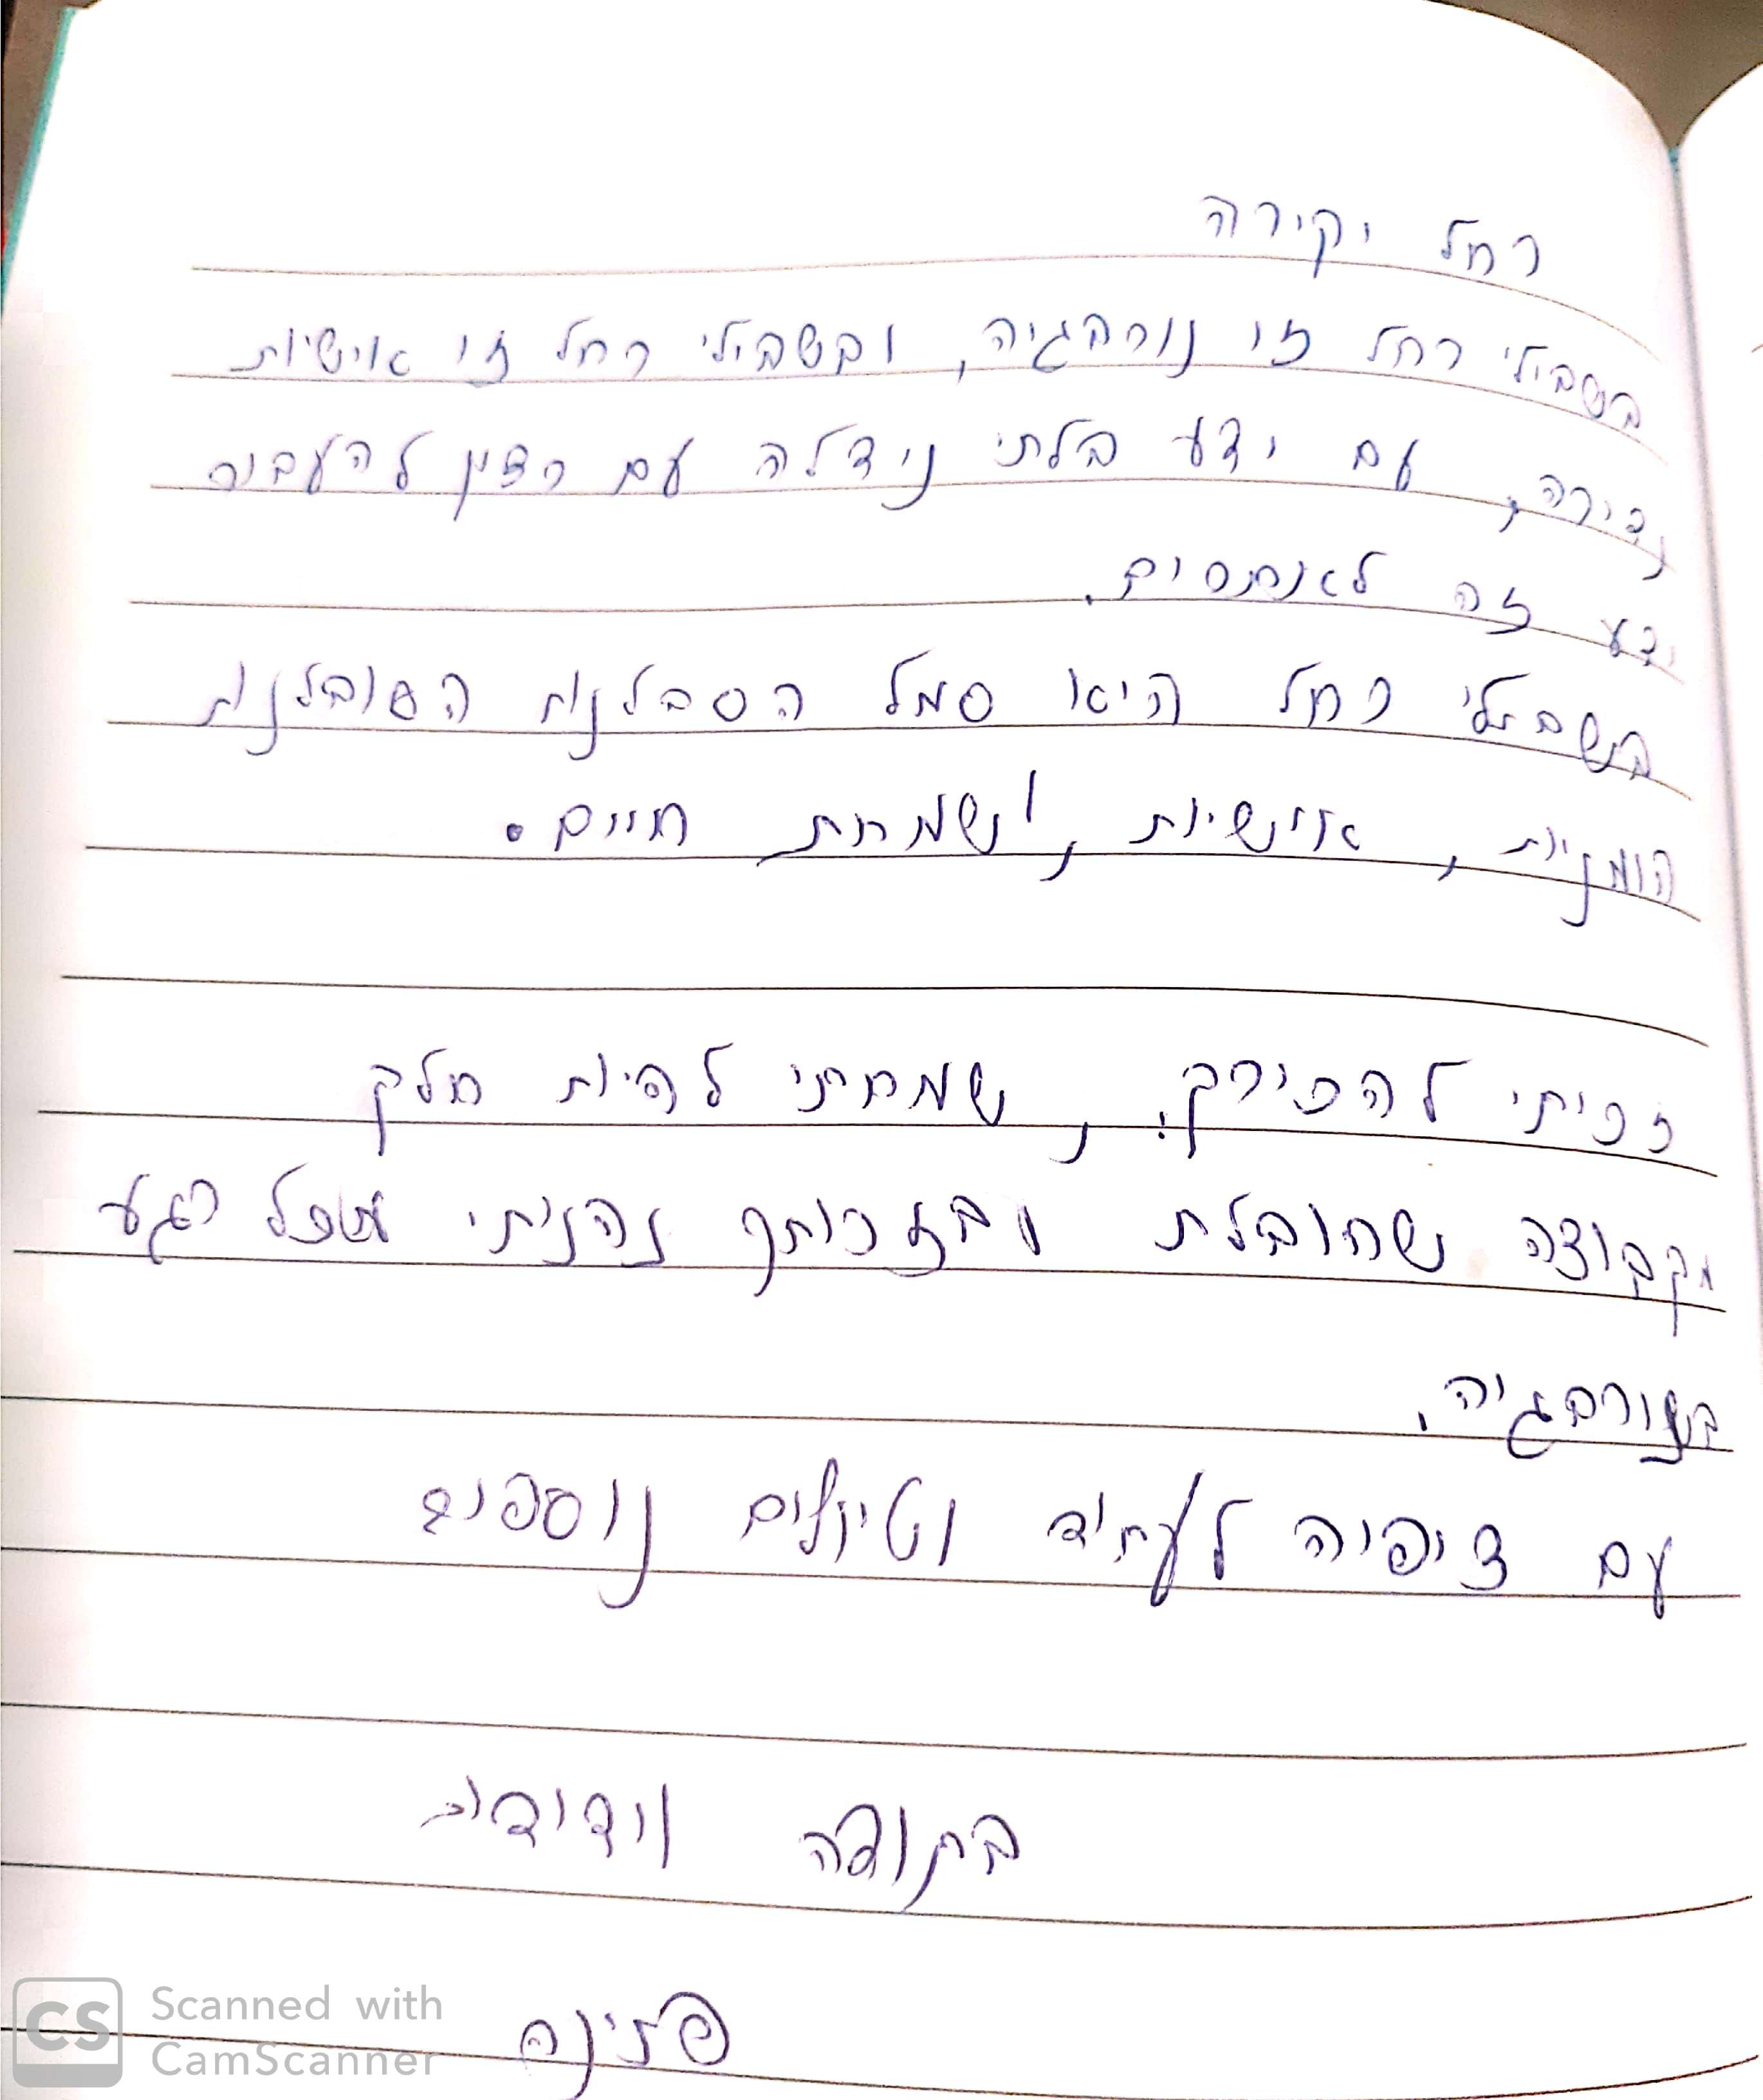 רחל יקירה
בשבילי רחל זו נורבגיה, ובשבילי רחל זו אישיות
נדירה, עם ידע בלתי נידלה עם רצון להעביר
ידע זה לאנשים.
בשבילי רחל היא סמל הסבלנות הסובלנות
הומניות, אנושיות, ושמחת חיים.
זכיתי להכירך, שמחתי להיות חלק
מקבוצה שהובלת ובזכותך נהניתי מכל רגע
בנורבגיה.
עם ציפיה לעתיד וטיולים נוספים
בתודה וידידות
פנינה
Scanned with
CamScanner
CS